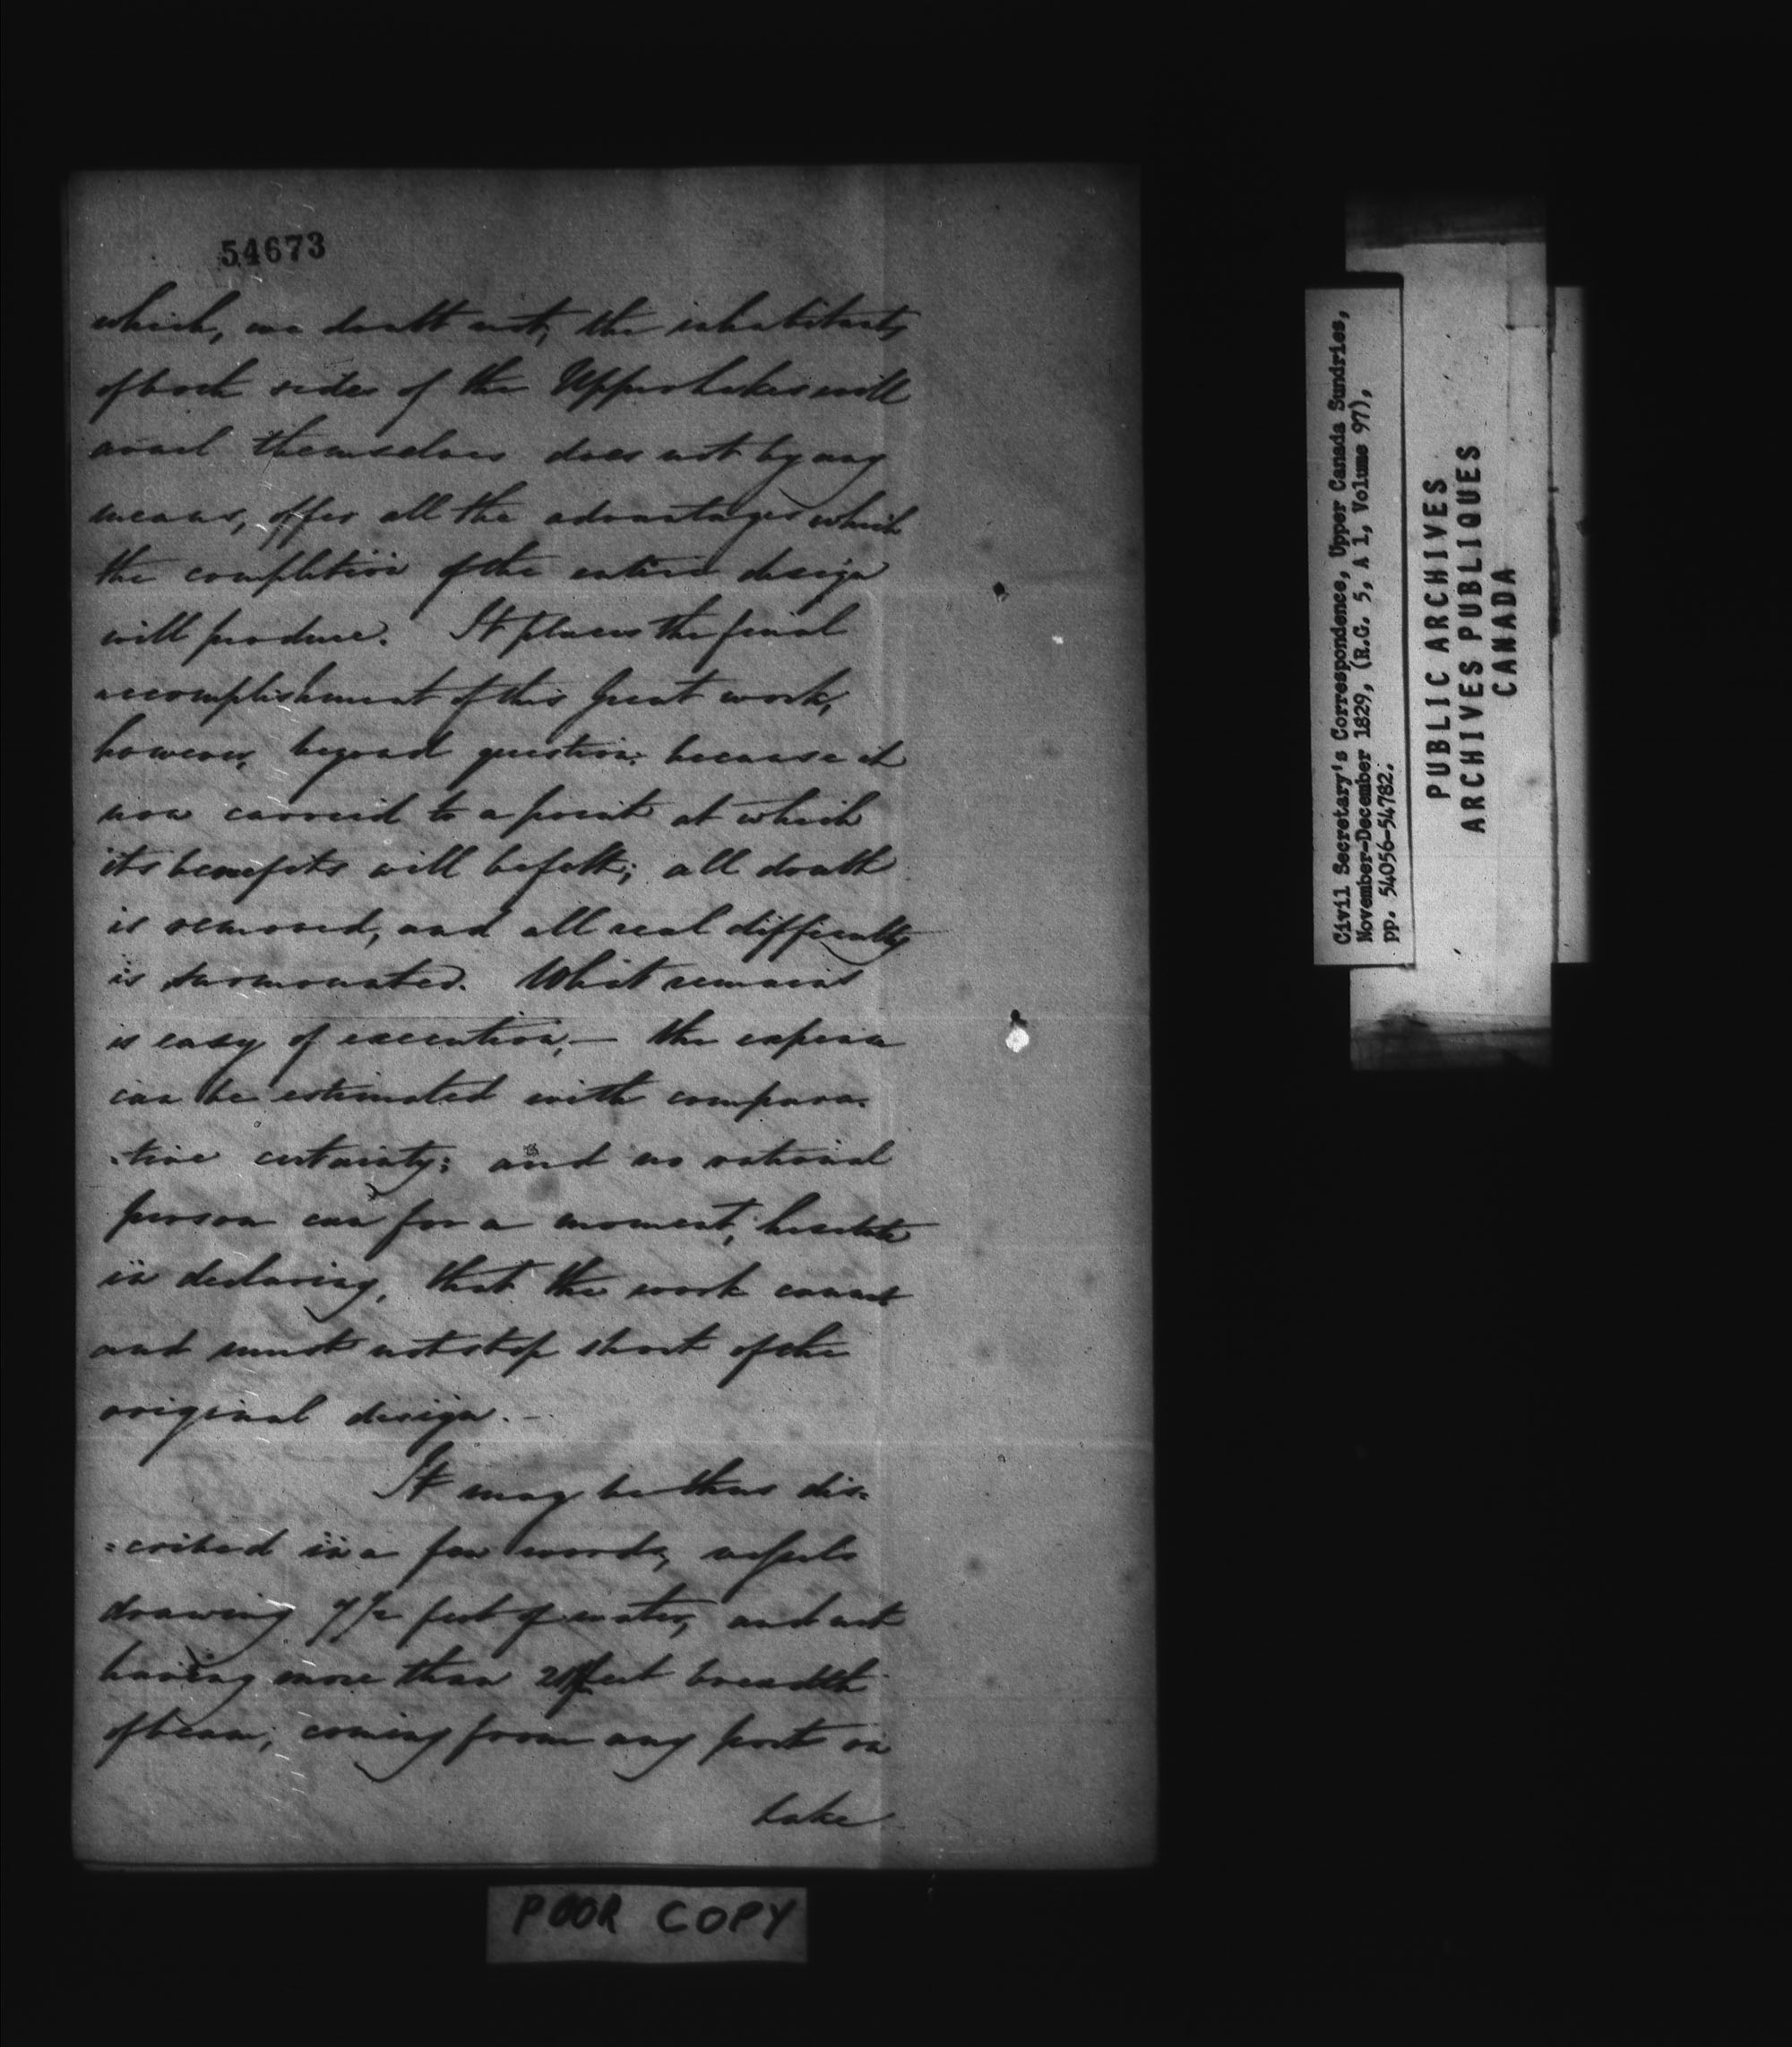 54673
which, we doubt not, the inhabitants
of both sides of the Upper Lakes will
avail themselves does not by any
means, offer all the advantages which
the completion of the entire design
will produce. It places the final
accomplishment of this Great work,
however, beyond question: because it
now carried to a point at which
its benefits will be felt; all doubt
is removed, and all real difficulty
is surmounted. What remains
is easy of execution, — the expense
can be estimated with compara-
-tive certainty; and no rational
person can for a moment, hesitate
in declaring, that the work cannot
and must not stop short of the
original design. —
It may be thus dis=
=cribed in a few words, vessels
drawing 7 1/2 feet of water, and not
having more than feet breadth
of beam, coming from any port on
Lake
POOR COPY
Civil Secretary's Correspondence, Upper Canada Sundries,
November-December 1829, (R.G. 5, A 1, Volume 97),
pp. 54056-54782.
PUBLIC ARCHIVES
ARCHIVES PUBLIQUES
CANADA